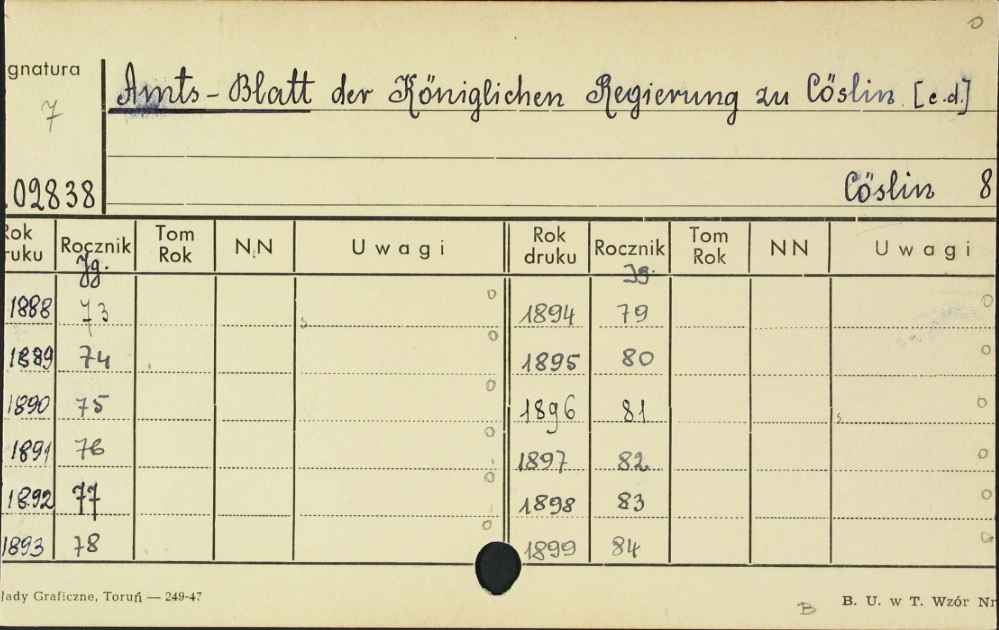 gnatura
7
Amts-Blatt der Königlichen Regierung zu Cöslin [c.d.]
02838
Cöslin 8
Rok druku Rocznik Jg. Tom Rok N.N Uwagi Rok druku Rocznik Jg. Tom Rok NN Uwagi
1888 73 1894 79
1889 74 1895 80
1890 75 1896 81
1891 76 1897 82
1892 77 1898 83
1893 78 1899 84
łady Graficzne, Toruń — 249-47
B
B. U. w T. Wzór Nr